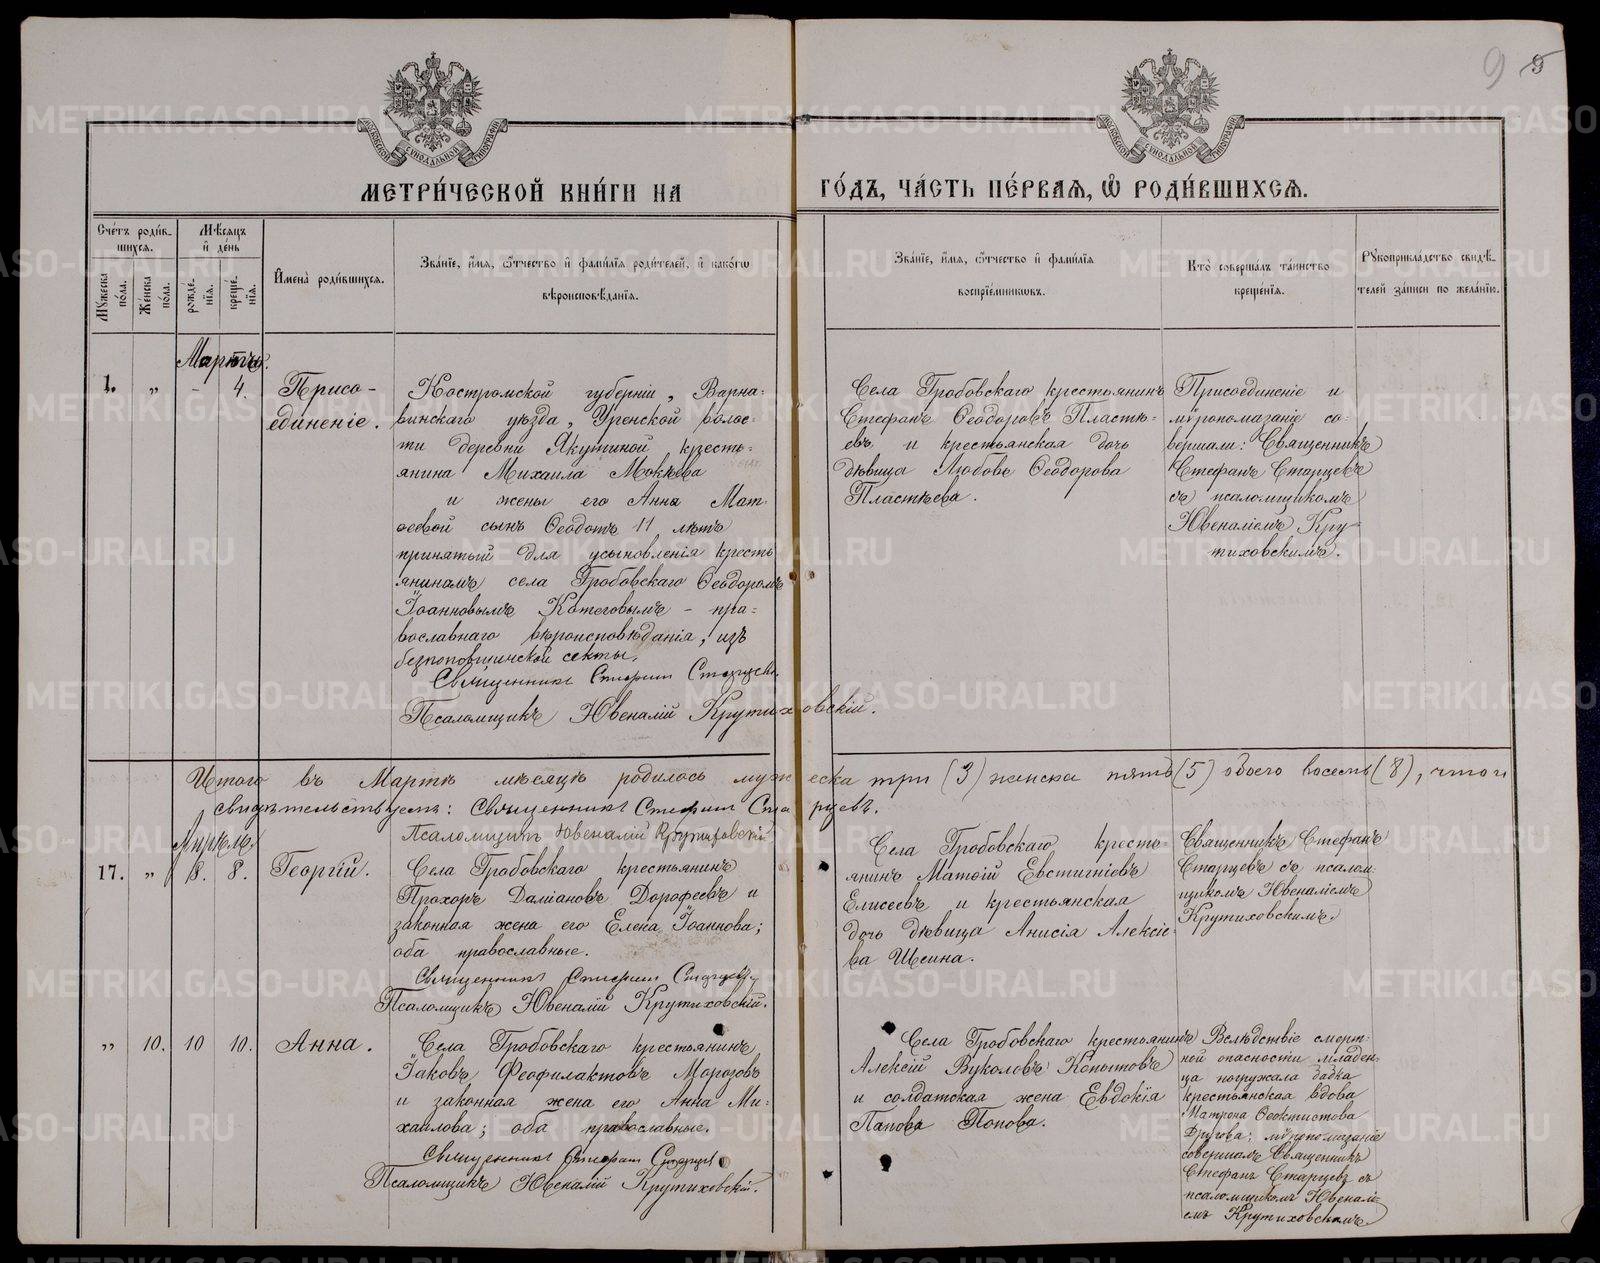 9
МЕТРИ́ЧЕСКОЙ КНИ́ГИ НА ГО́ДЪ, ЧА́СТЬ ПЕ́РВАЯ, Ѡ҆ РОДИ́ВШИХСЯ.
Сче́тъ роди́в-
шихся.
Мѣ́сяцъ
и҆ де́нь
Му́жеска по́ла.
Же́нска пола.
рожде́-
нїя.
креще́-
нїя.
И҆мена̀ роди́вшихся.
Зва́нїе, и҆́мя, ѻ҆́тчество и҆ фами́лїя роди́телей, и҆ како́гѡ
вѣроисповѣ́данїя.
Зва́нїе, и҆́мя, ѻ҆́тчество и҆ фами́лїя
воспрїе́мниковъ.
Кто̀ соверша́лъ та́инство
креще́нїя.
Рꙋкоприкла́дство свидѣ́-
телей за́писи по жела́нїю.
Мартъ.
1. „ – 4.
Присо-
единеніе.
Костромской губерніи, Варна-
винскаго уѣзда, Уренской волос-
ти деревни Якутиной кресть-
янина Михаила Мокѣева
и жены его Анны Мат-
ѳеевой сынъ Ѳеодотъ 11 лѣтъ
принятый для усыновленія кресть
яниномъ села Гробовскаго Ѳеодоромъ
Іоанновымъ Котеговымъ – пра-
вославнаго вѣроисповѣданія, изъ
безпоповщинской секты.
Священникъ Стефанъ Старцевъ.
Псаломщикъ Ювеналій Крутиховскій.
Села Гробовскаго крестьянинъ
Стефанъ Ѳеодоровъ Пластѣ-
евъ и крестьянская дочь
дѣвица Любовь Ѳеодорова
Пластѣева.
Присоединеніе и
мѵропомазаніе со-
вершали: Священникъ
Стефанъ Старцевъ
съ псаломщикомъ
Ювеналіемъ Кру-
тиховскимъ.
Итого въ Мартѣ мѣсяцѣ родилось мужеска три (3) женска пять (5) обоего восемь (8), что и
свидѣтельствуемъ: Священникъ Стефанъ Старцевъ.
Псаломщикъ Ювеналій Крутиховскій
Апрѣль.
17. „ 8. 8.
Георгій.
Села Гробовскаго крестьянинъ
Прохоръ Даміановъ Дорофеевъ и
законная жена его Елена Іоаннова;
оба православные.
Священникъ Стефанъ Старцевъ
Псаломщикъ Ювеналій Крутиховскій.
Села Гробовскаго кресть-
янинъ Матѳій Евстигніевъ
Елисеевъ и крестьянская
дочь дѣвица Анисія Алексіе-
ва Шеина.
Священникъ Стефанъ
Старцевъ съ псалом-
щикомъ Ювеналіемъ
Крутиховскимъ.
„ 10. 10 10.
Анна.
Села Гробовскаго крестьянинъ
Іаковъ Феофилактовъ Морозовъ
и законная жена его Анна Ми-
хаилова; оба православные.
Священникъ Стефанъ Старцевъ
Псаломщикъ Ювеналій Крутиховскій.
Села Гробовскаго крестьянинъ
Алексій Вуколовъ Копытовъ
и солдатская жена Евдокія
Попова.
Вслѣдствіе смерт-
ной опасности младен-
ца погружала бабка
крестьянская вдова
Матрона Ѳеоктистова
мѵропомазаніе
совершалъ Священникъ
Стефанъ Старцевъ съ
псаломщикомъ Ювеналі-
емъ Крутиховскимъ
METRIKI.GASO-URAL.RU